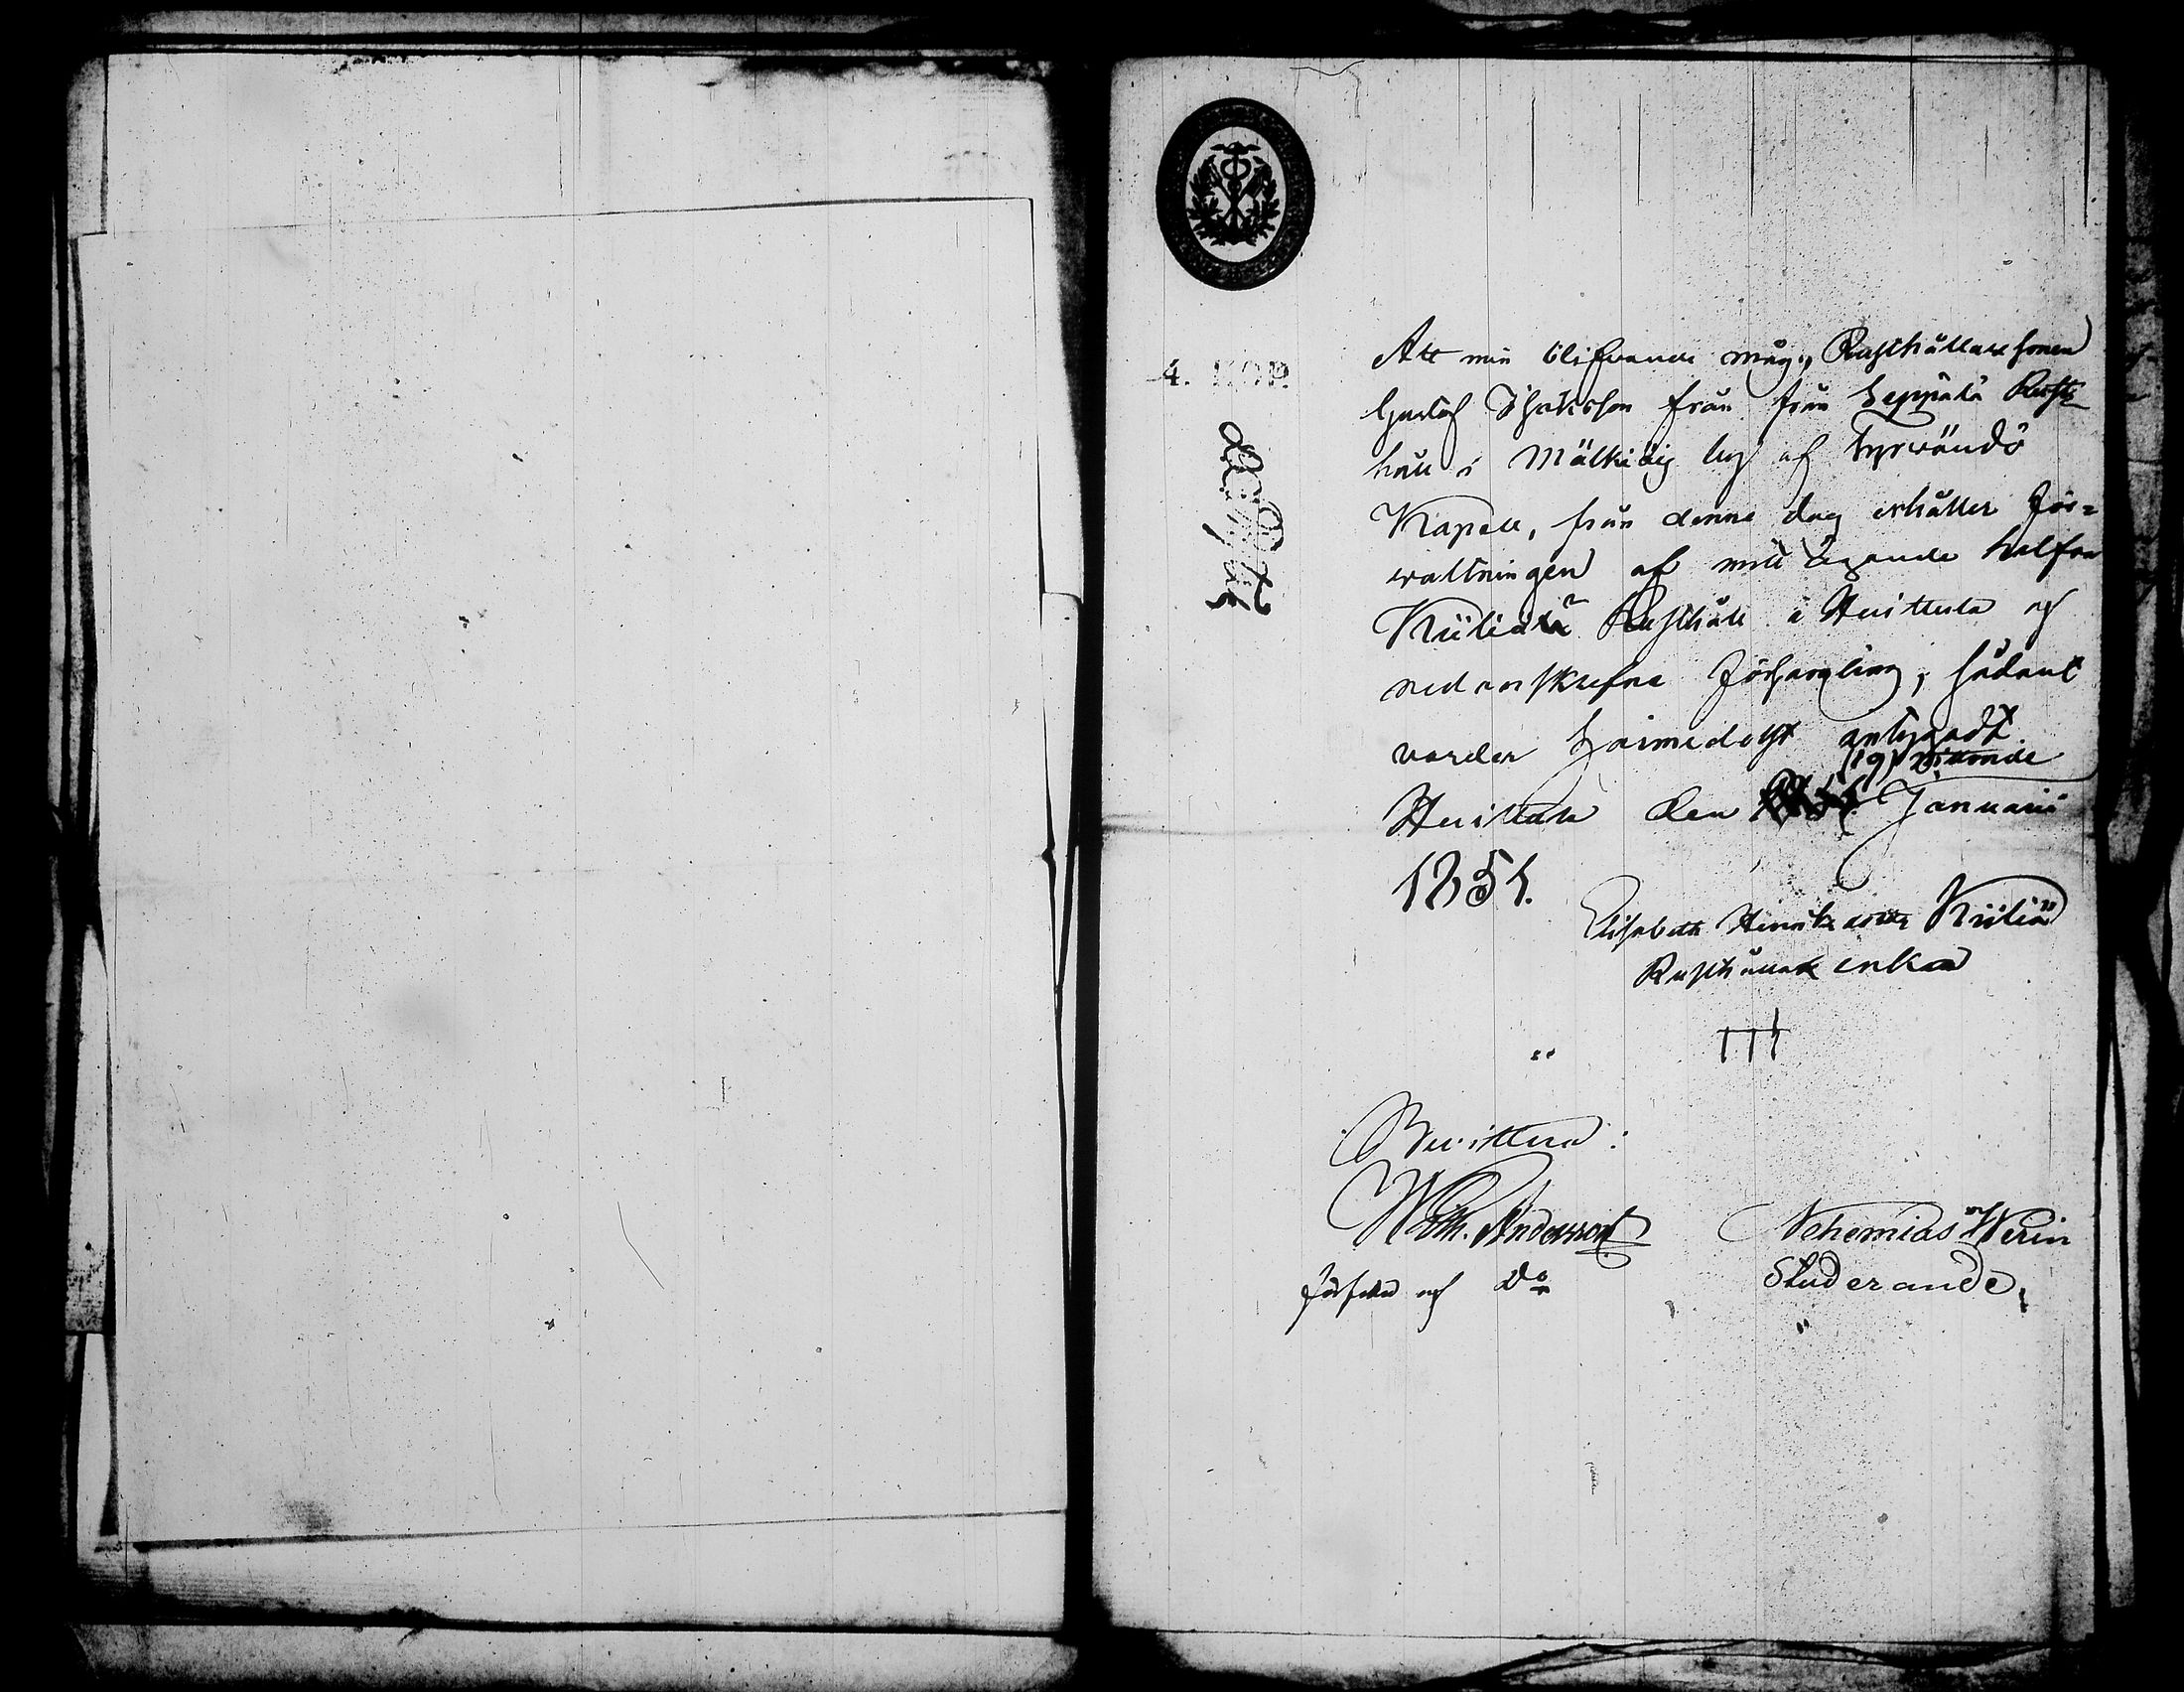 4. KOP.
Att min blifvande måg, Rusthållaresonen
Gustaf Isaksson från från Seppälä Rust-
håll i Mälkiäis by af Tyrwändö
Kapell, från denne dag erhåller för=
waltningen af mitt ägande halfva
Kiiliälä Rusthåll i Huittula af
nedanskrefne församling, sådant
varder härmedelst
(19) nittonde
Huittula den Januarii
1851.
Elisabeth Henriksdotter Kiiliä
Rusthållare enka
Bevittna:
Wilh. Andersson Nehemias Werin
Studerande.